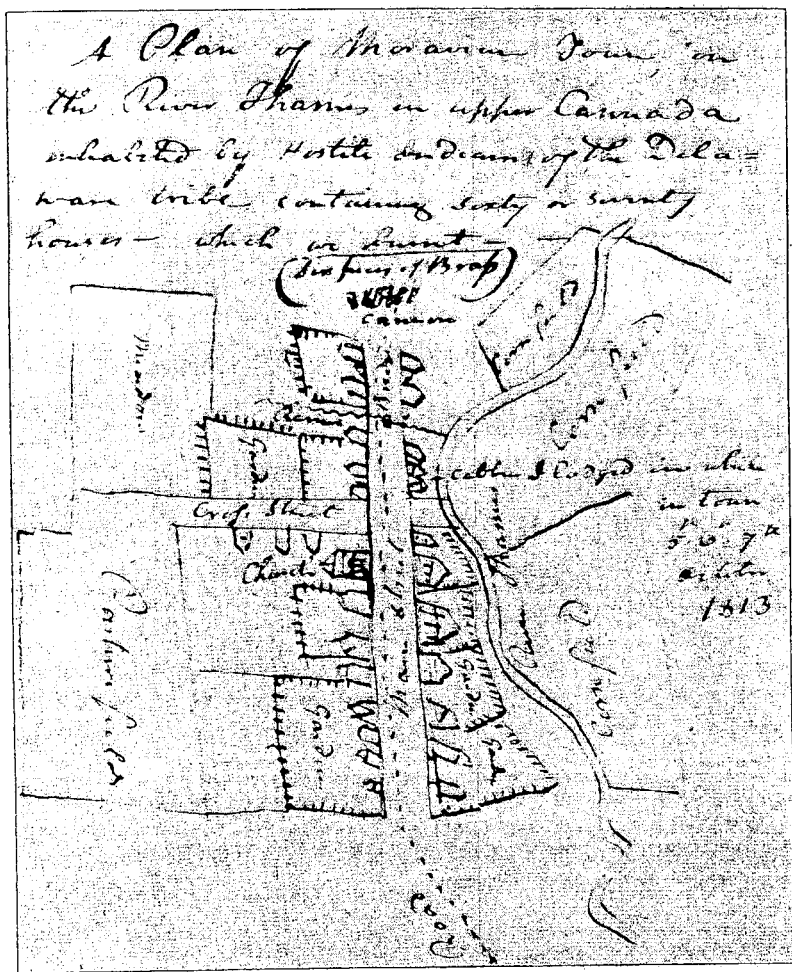 A Plan of Moravian Town, on
the River Thames in upper Cannada
inhabited by Hostile indians of the Dela=
ware tribe containing Sixty or Seventy
houses – which we burnt –
(Six pieces of Brass)
Cannon
Meadow
Corn field
Corn field
Garden
cabbin I lodged in when
in town
5th 6th 7th
October
1813
Cross Street
Church
Main Street
River Thames
Garden
Garden
Garden
Corn field
Road